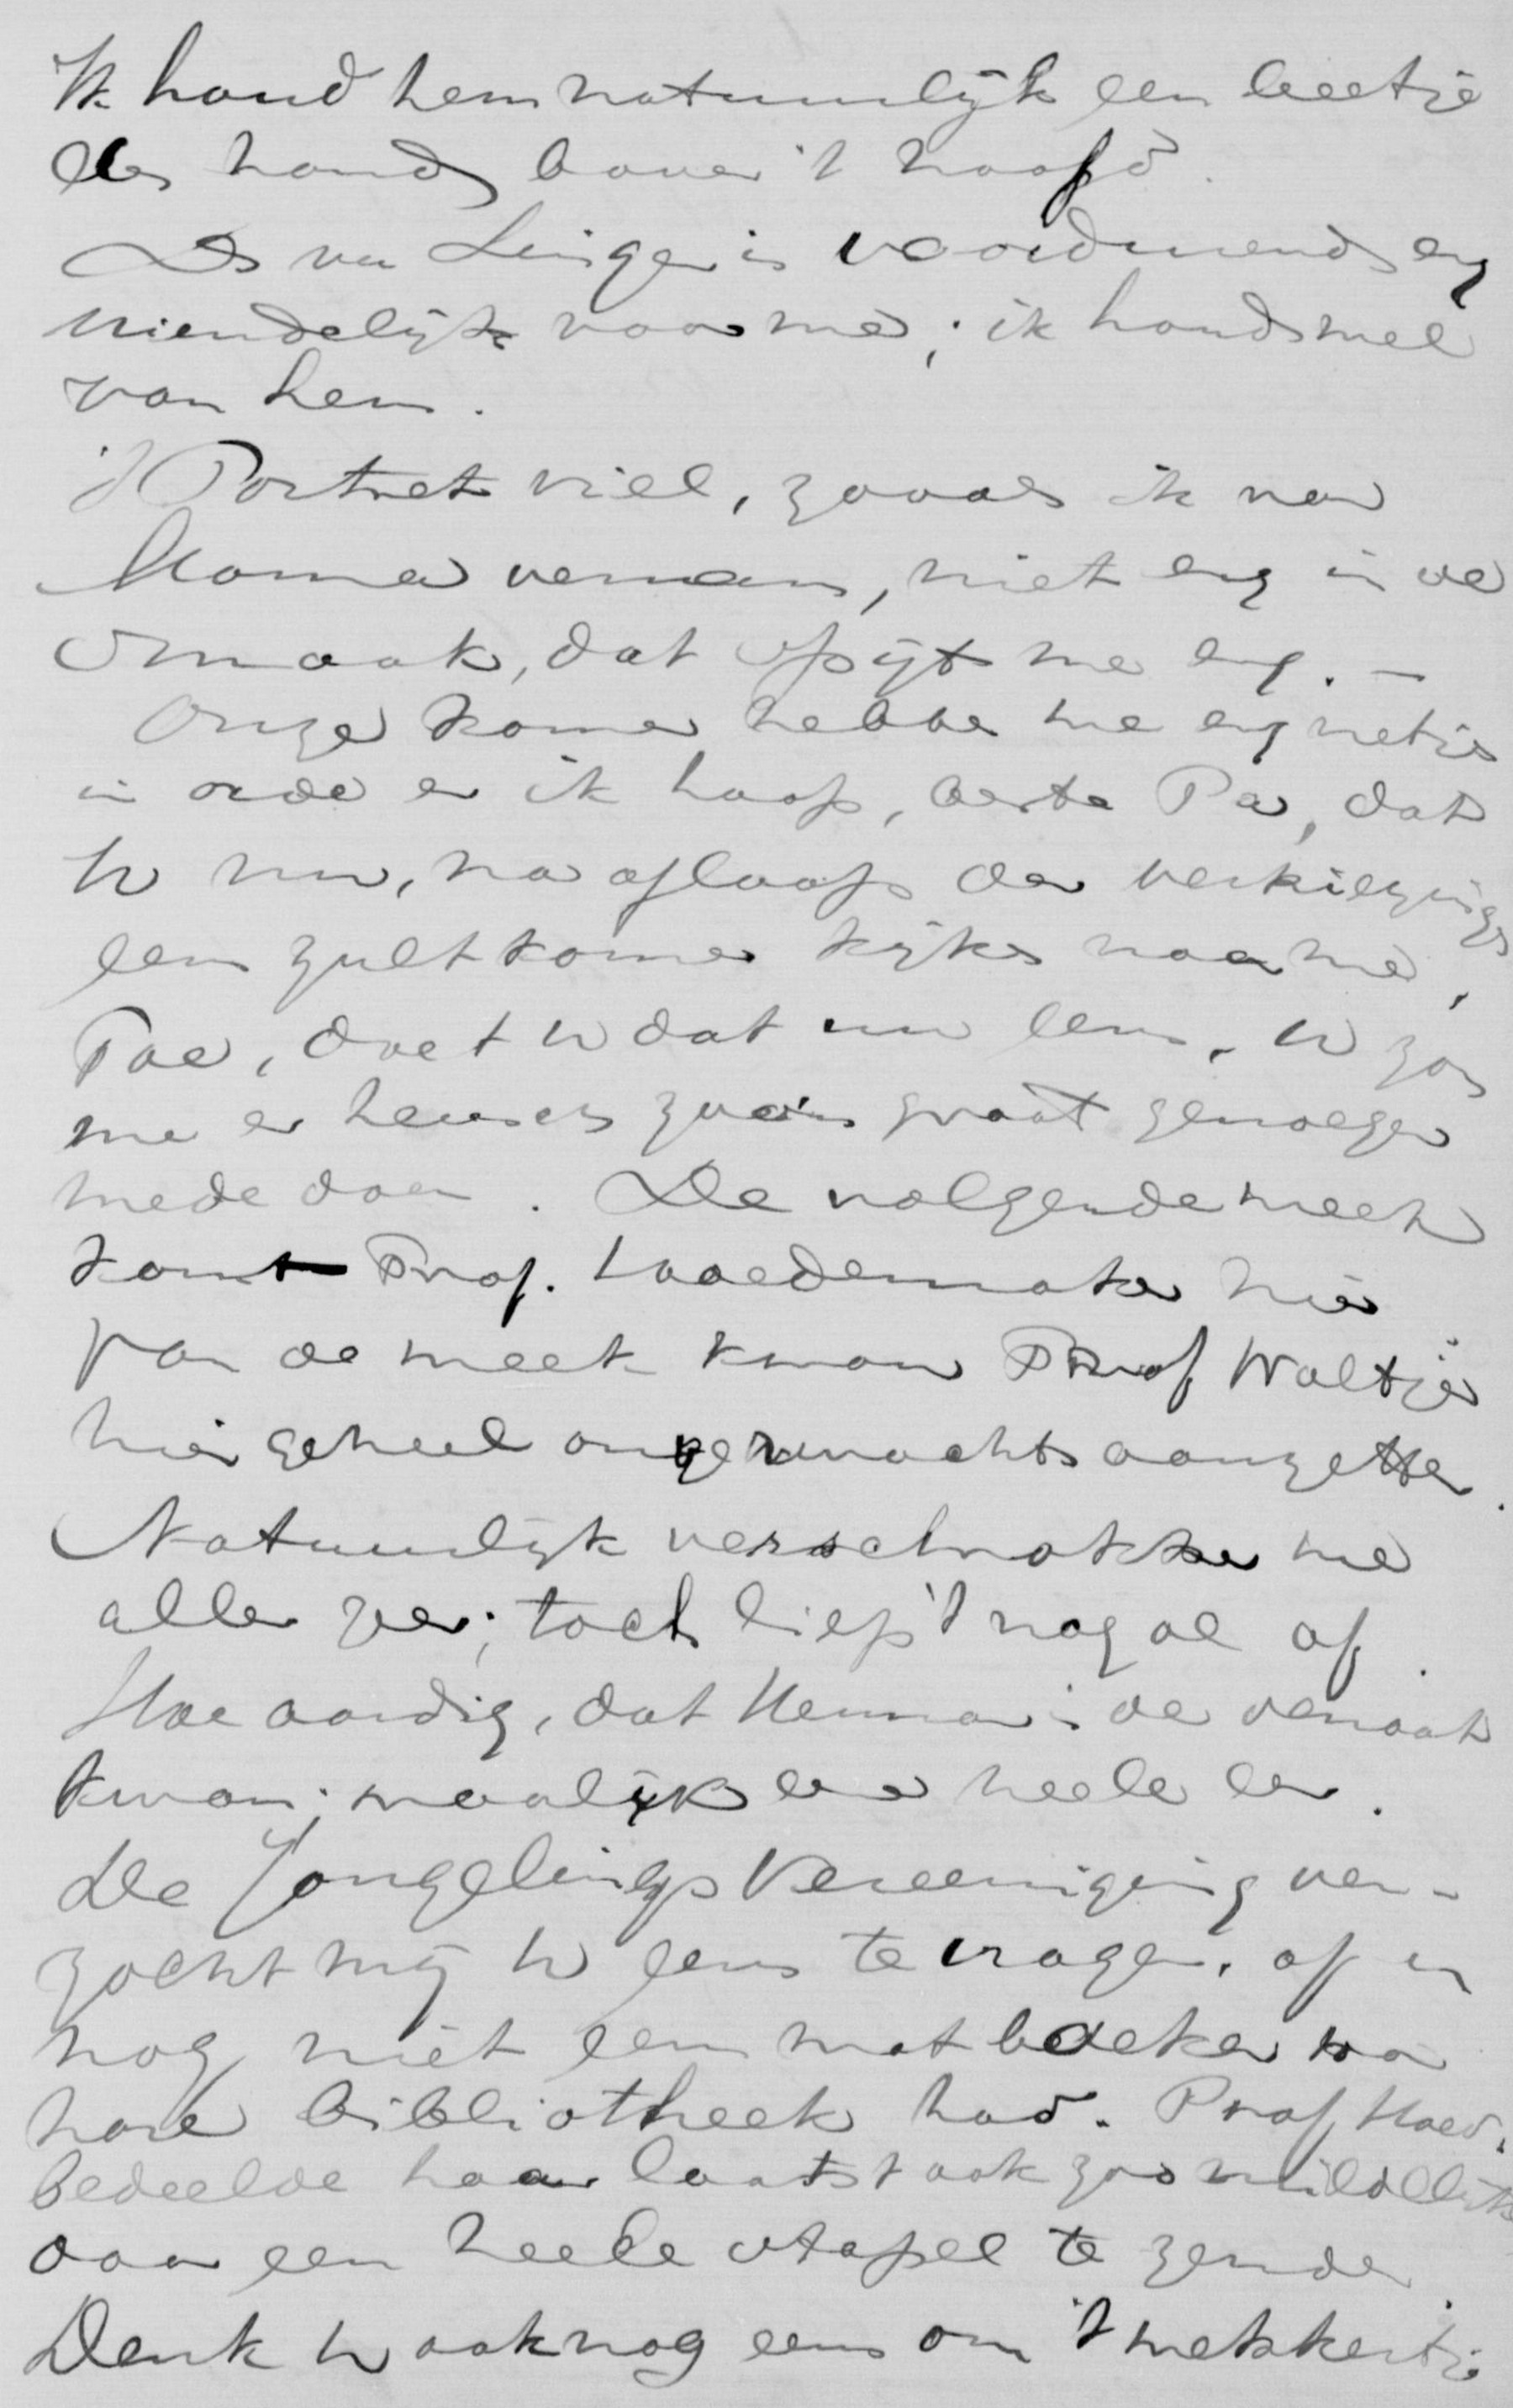 Ik houd hem natuurlijk een beetje
de hand boven 't hoofd.
Ds van Lingen is voortdurend erg
vriendelijk voor me; ik houd wel
van hem.
't Portret viel, zooals ik van
Mama vernam, niet erg in de
smaak, dat spijt me erg. —
Onze kamer hebben we erg netjes
in orde en ik hoop, beste Pa, dat
U nu, na afloop der verkiezingen
eens zult komen kijken naar me,
Toe, doet U dat nu eens, U zou
me er heusch zoo'n groot genoegen
mede doen. De volgende week
komt Prof. Hoedemaker hier
Van de week kwam Prof Woltjer
hier geheel onverwachts aanzetten.
Natuurlijk verschrokken we
allen zeer; toch liep 't nog al af.
Hoe aardig, dat Herman in de senaat
kwam; waarlijk een heele eer.
De Jongelings Vereeniging ver-
zocht mij U eens te vragen, of U
nog niet eens wat boeken voor
hare bibliotheek had. Prof Hoed.
bedeelde haar laatst ook zoo mildelijk
door een heele stapel te zenden.
Denk U ook nog eens om 't wekkertje